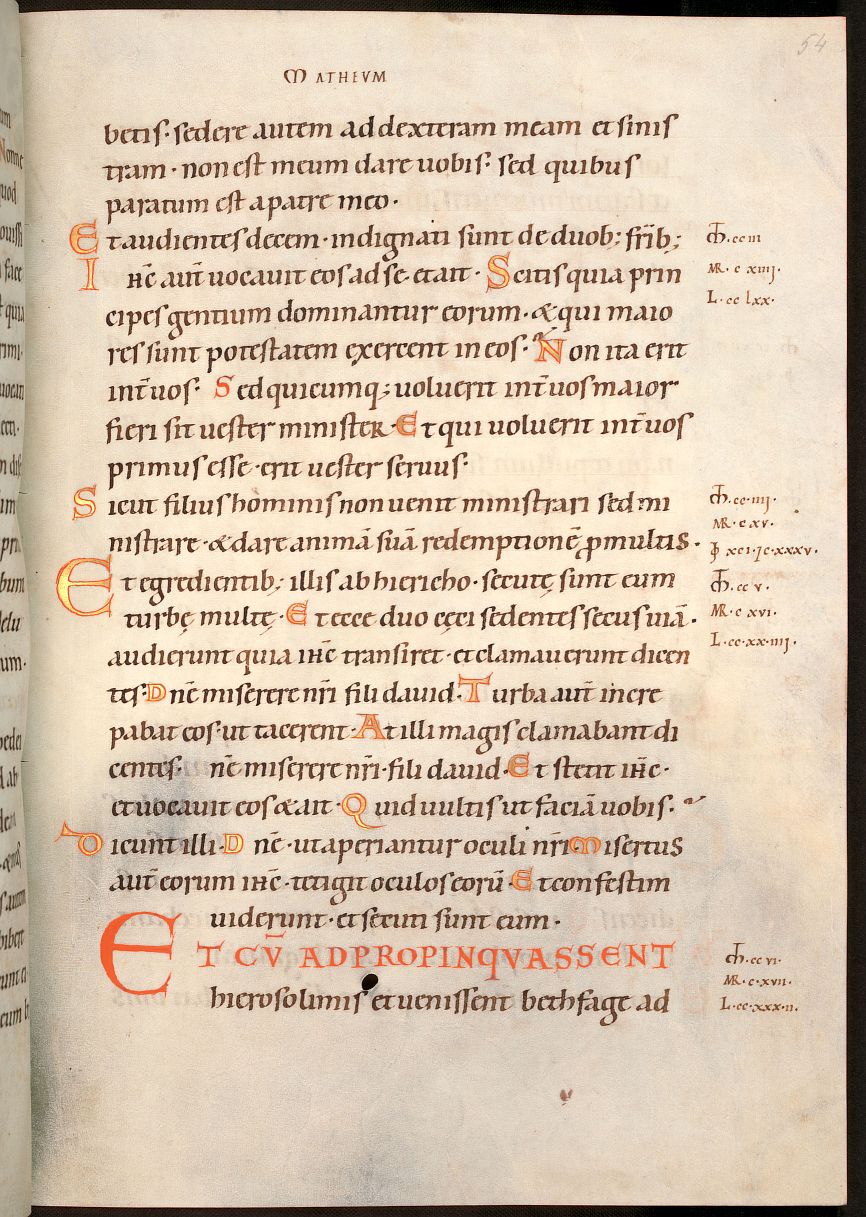 54
MATHEVM
betis· sedere autem ad dexteram meam et sinis
tram· non est meum dare uobis· sed quibus
paratum est a patre meo·
Et audientes decem· indignati sunt de duob; fr̅ib;
Ihc̅ aut̅ uocauit eos ad se· et ait· Scitis quia prin
cipes gentium dominantur eorum· & qui maio
res sunt potestatem exercent in eos· Non ita erit
int̅ uos· Sed quicumq; uoluerit int̅ uos maior
fieri sit uester minister· Et qui uoluerit int̅ uos
primus esse· erit uester seruus·
Sicut filius hominis non uenit ministrari sed mi
nistrare· & dare animā suā redemptionē ꝓ multis·
Et egredientib; illis ab hiericho· secutę sunt eum
turbę multę· Et ecce duo cęci sedentes secus uiā·
audierunt quia ihc̅ transiret· et clamauerunt dicen
tes· Dn̅e miserere nr̅i fili dauid· Turba aut̅ incre
pabat eos· ut tacerent· At illi magis clamabant di
centes· n̅e miserere nr̅i· fili dauid· Et stetit ihc̅·
et uocauit eos & ait· Quid uultis ut faciā uobis·
Dicunt illi· Dn̅e· ut aperiantur oculi nr̅i· Misertus
aut̅ eorum ihc̅· tetigit oculos eorū· Et confestim
uiderunt· et secuti sunt eum·
ET CV̅ ADPROPINQVASSENT
hierosolimis et uenissent bethfage ad
M̅t̅h. cc iii
MR· c xiii·
L· cc lxx·
M̅t̅h. cc· iiii·
MR· c xv·
M̅t̅h. cc v·
MR· c xvi·
L· cc· xx· iiii·
M̅t̅h. cc vi·
MR· c· xvii·
L· cc· xxx· ii·